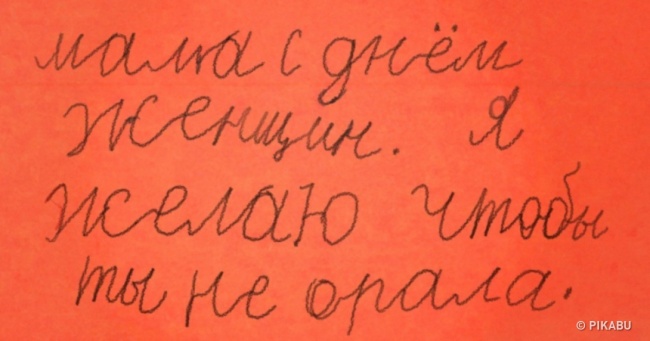 мама с днём
женщин. Я
желаю чтобы
ты не орала.
© PIKABU